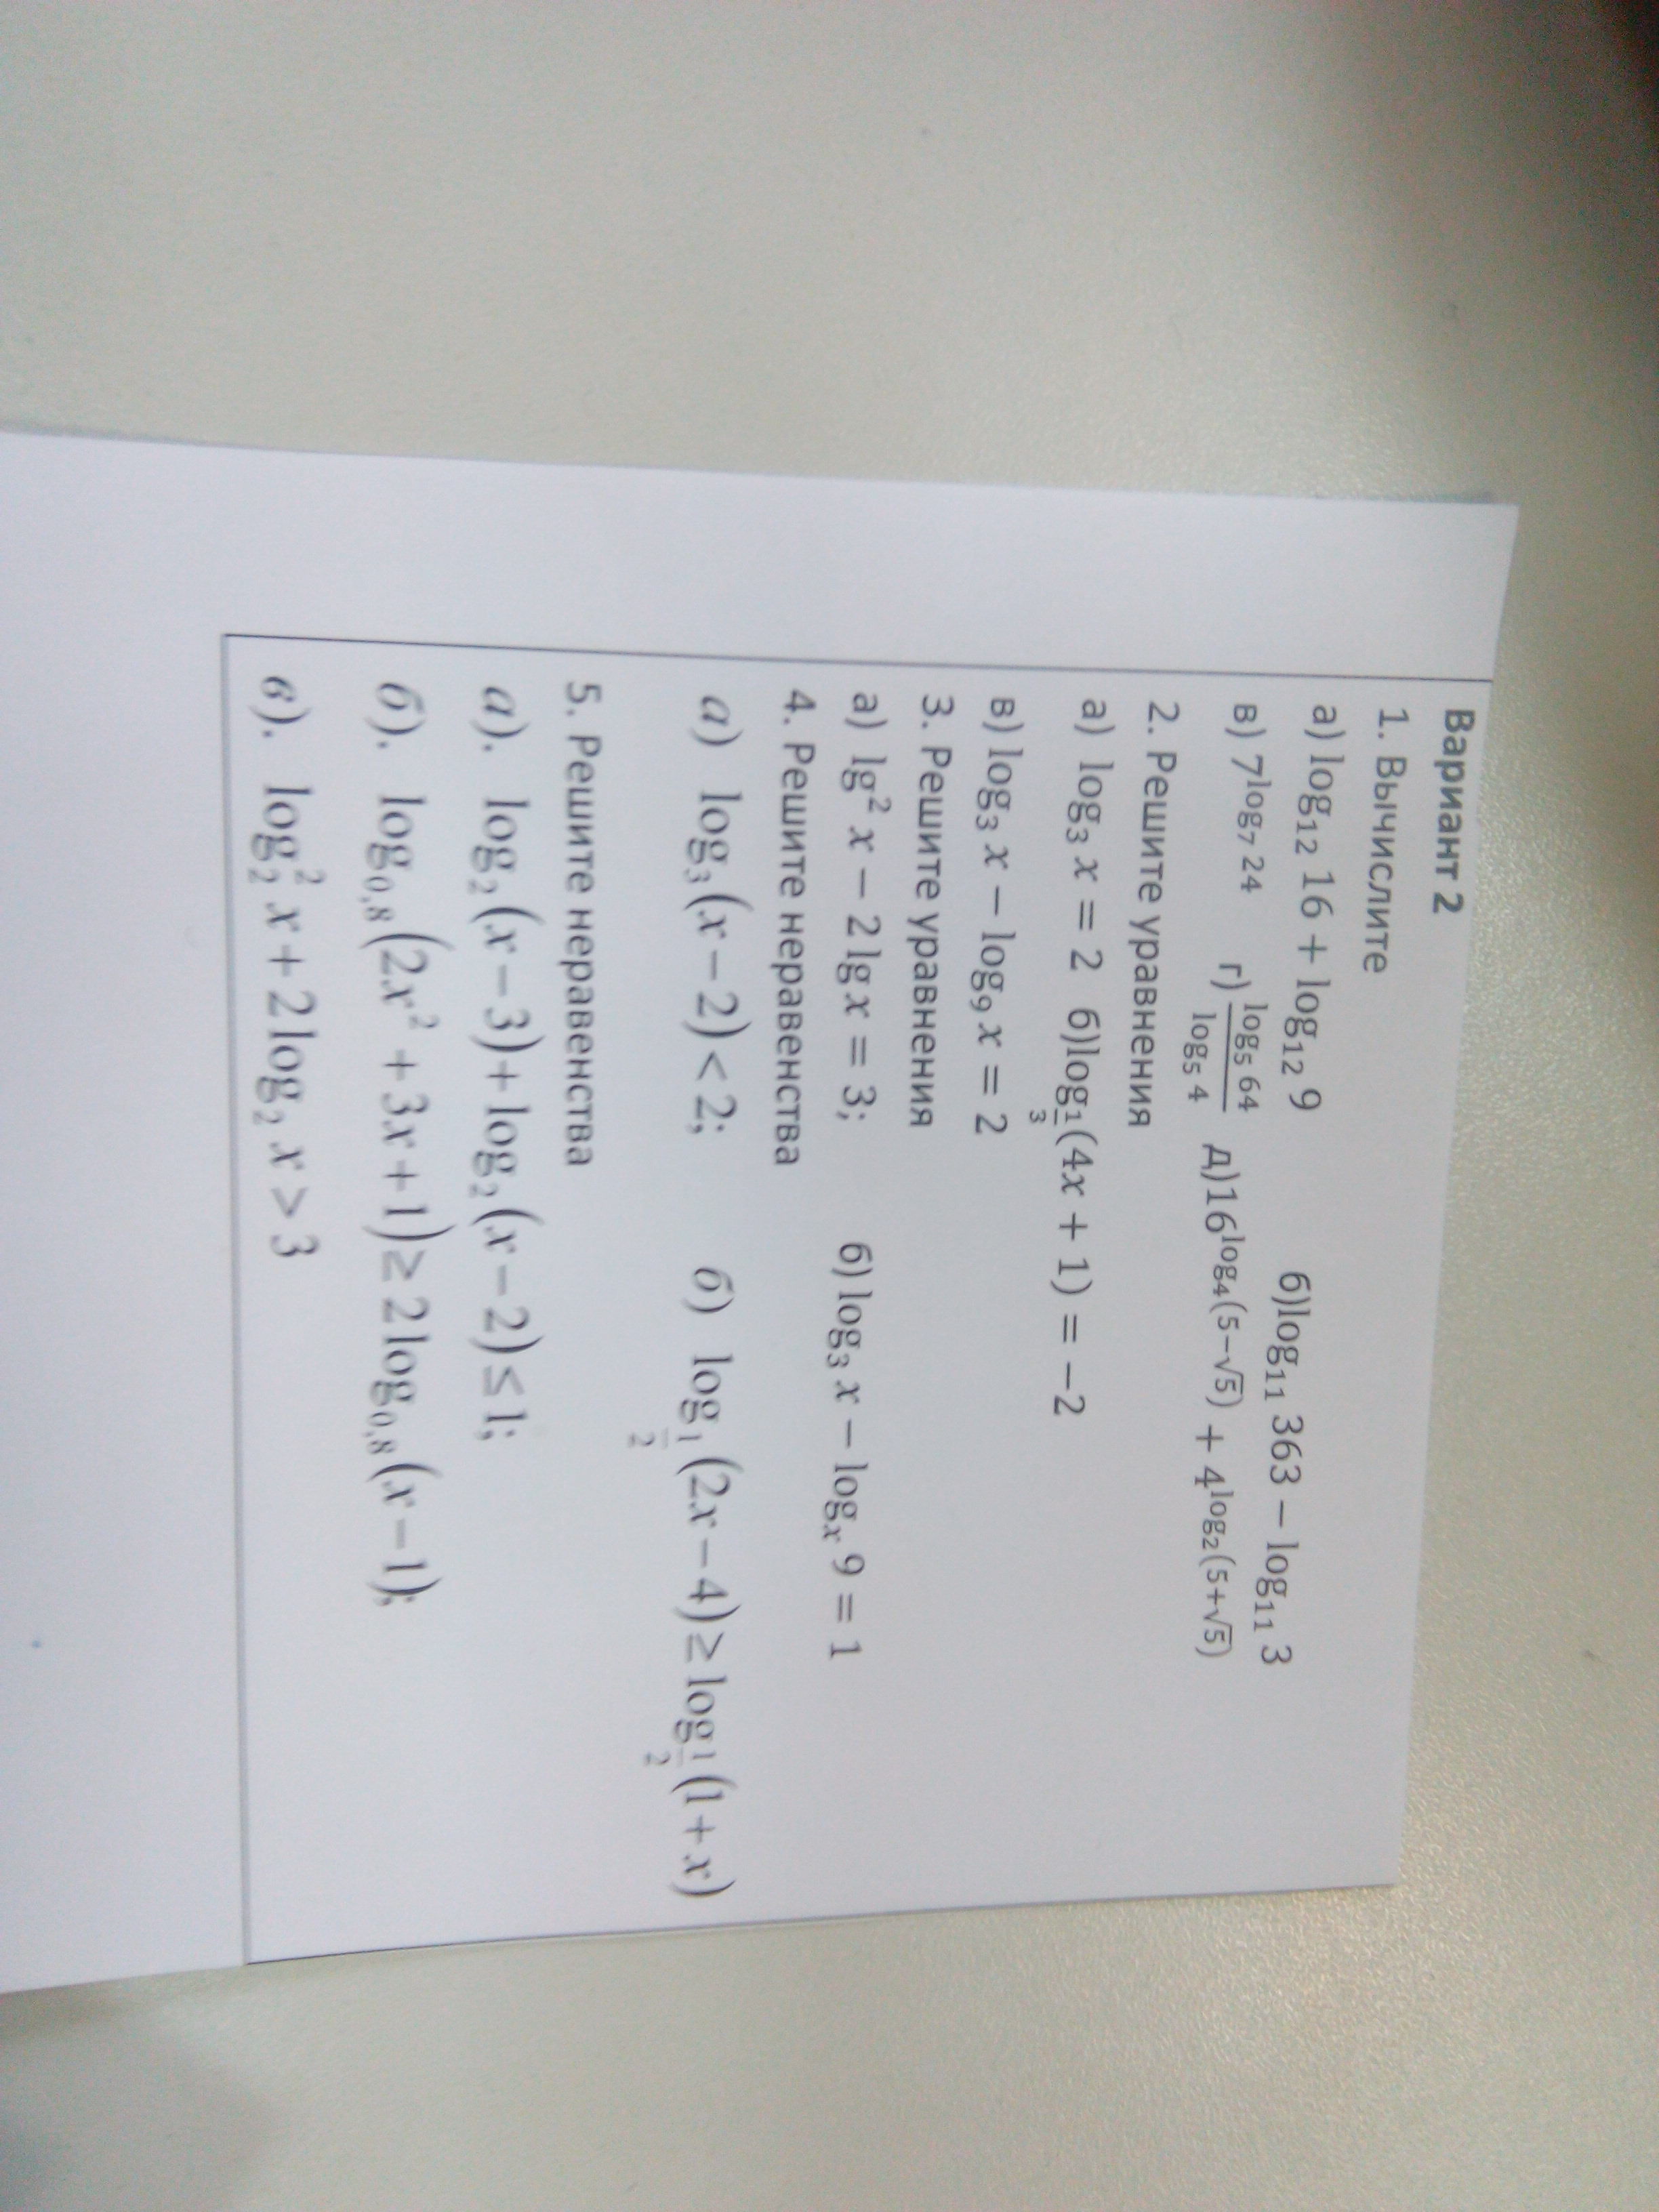 Вариант 2
1. Вычислите
а) log₁₂ 16 + log₁₂ 9 б)log₁₁ 363 − log₁₁ 3
в) 7^(log₇ 24) г) (log₅ 64)/(log₅ 4) д)16^(log₄(5−√5)) + 4^(log₂(5+√5))
2. Решите уравнения
а) log₃ x = 2 б)log_(1/3)(4x + 1) = −2
в) log₃ x − log₉ x = 2
3. Решите уравнения
а) lg² x − 2 lg x = 3; б) log₃ x − logₓ 9 = 1
4. Решите неравенства
а) log₃(x − 2) < 2; б) log_(1/2)(2x − 4) ≥ log_(1/2)(1 + x)
5. Решите неравенства
а). log₂(x − 3) + log₂(x − 2) ≤ 1;
б). log₀,₈(2x² + 3x + 1) ≥ 2 log₀,₈(x − 1);
в). log₂² x + 2 log₂ x > 3